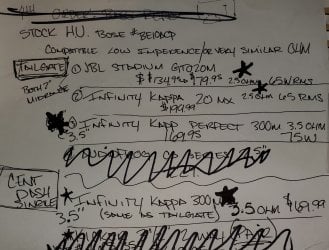 STOCK H.U. BOSE
COMPATIBLE LOW IMPEDENCE/OR VERY SIMILAR OHM
TAILGATE ① JBL STADIUM GTO20M
$134.95 $79.95 2.5 OHM 65W RMS
BOTH? MIDRANGE ② INFINITY KAPPA 20 MX 2.5 OHM 65 RMS
$199.99
③ INFINITY KAPPA PERFECT 300M 3.5 OHM
3.5" 169.95 75W
CENT DASH SINGLE
INFINITY KAPPA 300M
3.5" (SAME AS TAILGATE) 3.5 OHM $169.99